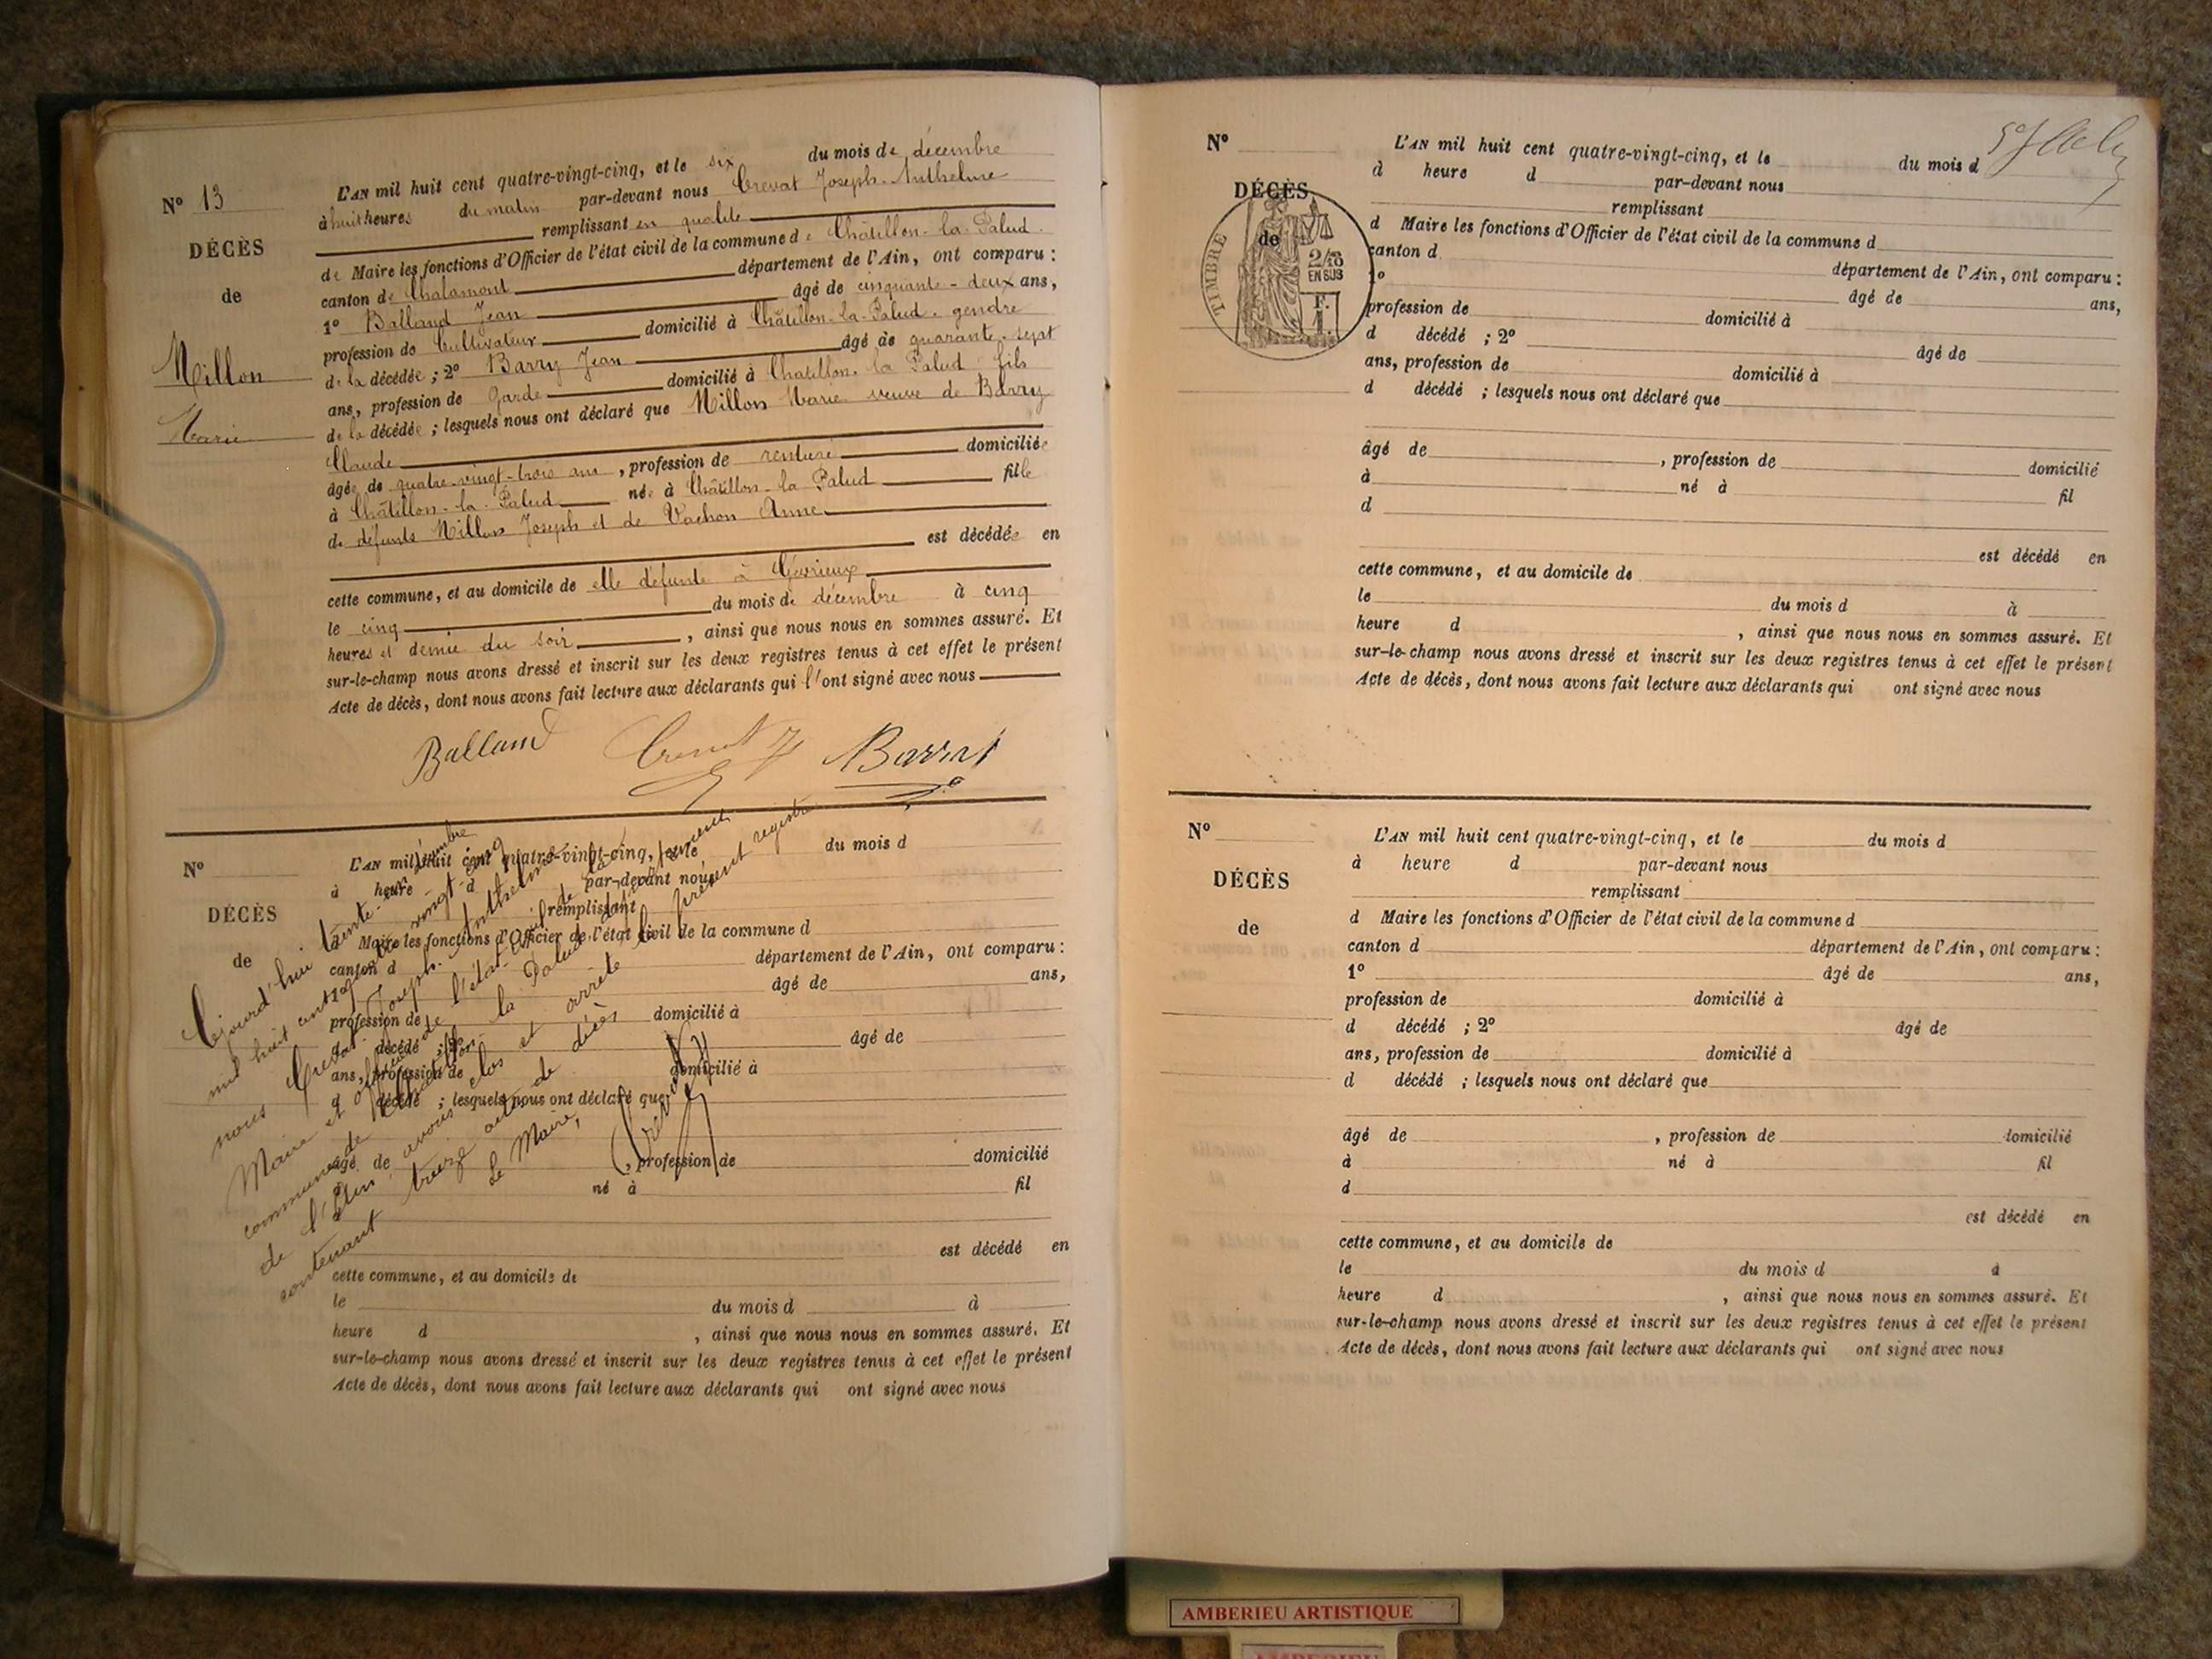 Nº 13
DÉCÈS
de
Millon
Marie
L'AN mil huit cent quatre-vingt-cinq, et le six du mois de décembre
à huit heures du matin par-devant nous Crevat Joseph-Anthelme
remplissant en qualité
de Maire les fonctions d'Officier de l'état civil de la commune de Châtillon-la-Palud
canton de Chalamont département de l'Ain, ont comparu :
1º Balland Jean âgé de cinquante-deux ans,
profession de Cultivateur domicilié à Châtillon-la-Palud gendre
de la décédée ; 2º Barry Jean âgé de quarante-sept
ans, profession de Garde domicilié à Chatillon-la Palud fils
de la décédée ; lesquels nous ont déclaré que Millon Marie veuve de Barry
Claude
âgée de quatre-vingt-trois ans, profession de rentière domiciliée
à Châtillon-la-Palud née à Châtillon-la Palud fille
de défunts Millon Joseph et de Vachon Anne
est décédée en
cette commune, et au domicile de elle défunte à Gévrieux
le cinq du mois de décembre à cinq
heures et demie du soir, ainsi que nous nous en sommes assuré. Et
sur-le-champ nous avons dressé et inscrit sur les deux registres tenus à cet effet le présent
Acte de décès, dont nous avons fait lecture aux déclarants qui l'ont signé avec nous
Balland Crevat J Barry
Nº
DÉCÈS
de
L'AN mil huit cent quatre-vingt-cinq, et le du mois d
à heure d par-devant nous
remplissant
d Maire les fonctions d'Officier de l'état civil de la commune d
canton d département de l'Ain, ont comparu :
1º âgé de ans,
profession de domicilié à
d décédé ; 2º âgé de
ans, profession de domicilié à
d décédé ; lesquels nous ont déclaré que
âgé de , profession de domicilié
à né à fil
d
est décédé en
cette commune, et au domicile de
le du mois d à
heure d , ainsi que nous nous en sommes assuré. Et
sur-le-champ nous avons dressé et inscrit sur les deux registres tenus à cet effet le présent
Acte de décès, dont nous avons fait lecture aux déclarants qui ont signé avec nous
mil huit cent quatre vingt cinq
nous Crevat Joseph-Anthelme
Maire et officier de l'état-civil de la
commune de Châtillon la Palud
de l'Ain, avons clos et arrêté le présent registre
contenant treize actes de décès
Le Maire,
Crevat J
Nº
DÉCÈS
de
TIMBRE
2/10
EN SUS
L'AN mil huit cent quatre-vingt-cinq, et le du mois d
à heure d par-devant nous
remplissant
d Maire les fonctions d'Officier de l'état civil de la commune d
canton d département de l'Ain, ont comparu :
1º âgé de ans,
profession de domicilié à
d décédé ; 2º âgé de
ans, profession de domicilié à
d décédé ; lesquels nous ont déclaré que
âgé de , profession de domicilié
à né à fil
d
est décédé en
cette commune, et au domicile de
le du mois d à
heure d , ainsi que nous nous en sommes assuré. Et
sur-le-champ nous avons dressé et inscrit sur les deux registres tenus à cet effet le présent
Acte de décès, dont nous avons fait lecture aux déclarants qui ont signé avec nous
Nº
DÉCÈS
de
L'AN mil huit cent quatre-vingt-cinq, et le du mois d
à heure d par-devant nous
remplissant
d Maire les fonctions d'Officier de l'état civil de la commune d
canton d département de l'Ain, ont comparu :
1º âgé de ans,
profession de domicilié à
d décédé ; 2º âgé de
ans, profession de domicilié à
d décédé ; lesquels nous ont déclaré que
âgé de , profession de domicilié
à né à fil
d
est décédé en
cette commune, et au domicile de
le du mois d à
heure d , ainsi que nous nous en sommes assuré. Et
sur-le-champ nous avons dressé et inscrit sur les deux registres tenus à cet effet le présent
Acte de décès, dont nous avons fait lecture aux déclarants qui ont signé avec nous
AMBERIEU ARTISTIQUE
AMBERIEU